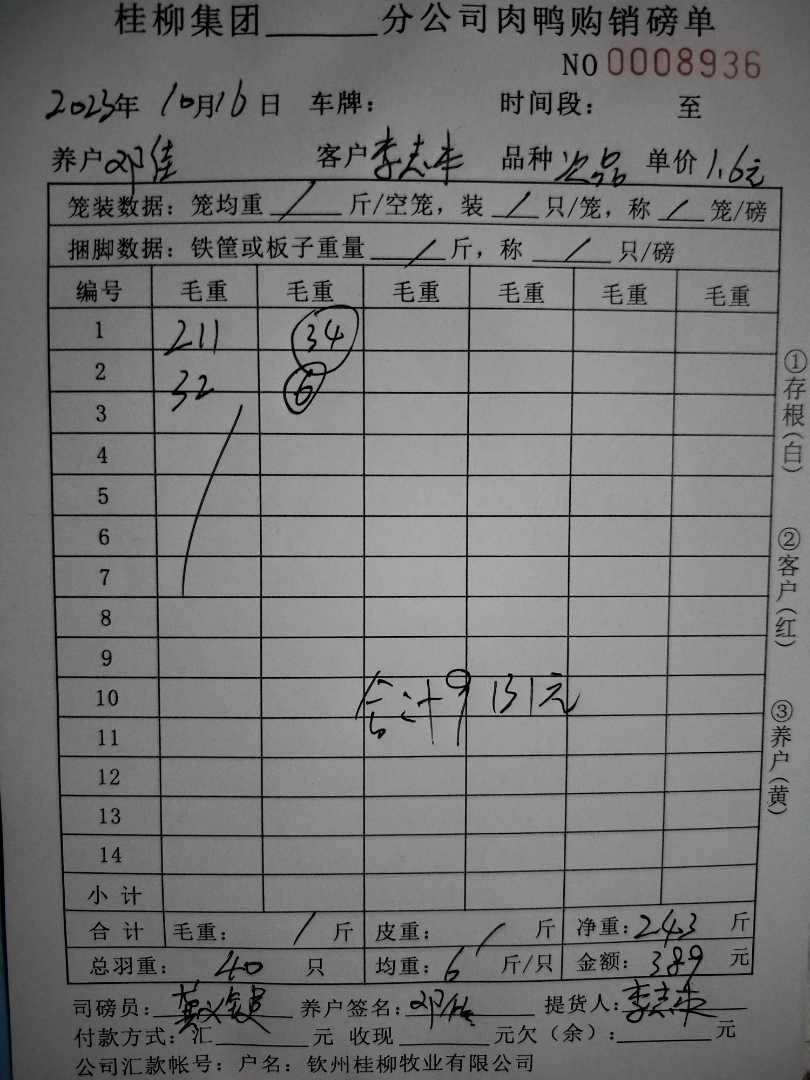 桂柳集团______分公司肉鸭购销磅单
NO 0008936
2023年 10月16日 车牌： 时间段： 至
养户 邓佳 客户 李志来 品种 次品 单价 1.6元
笼装数据：笼均重 / 斤/空笼，装 / 只/笼，称 / 笼/磅
捆脚数据：铁筐或板子重量 / 斤，称 / 只/磅
编号 毛重 毛重 毛重 毛重 毛重 毛重
1 211 34
2 32 6
3
4
5
6
7
8
9
10 合计9131元
11
12
13
14
小计
合计 毛重： / 斤 皮重： / 斤 净重：243 斤
总羽重： 40 只 均重：6 斤/只 金额：389 元
司磅员： 养户签名：邓佳 提货人：李志来
付款方式：汇______元 收现______元欠（余）：______元
公司汇款帐号：户名：钦州桂柳牧业有限公司
①存根（白）
②客户（红）
③养户（黄）